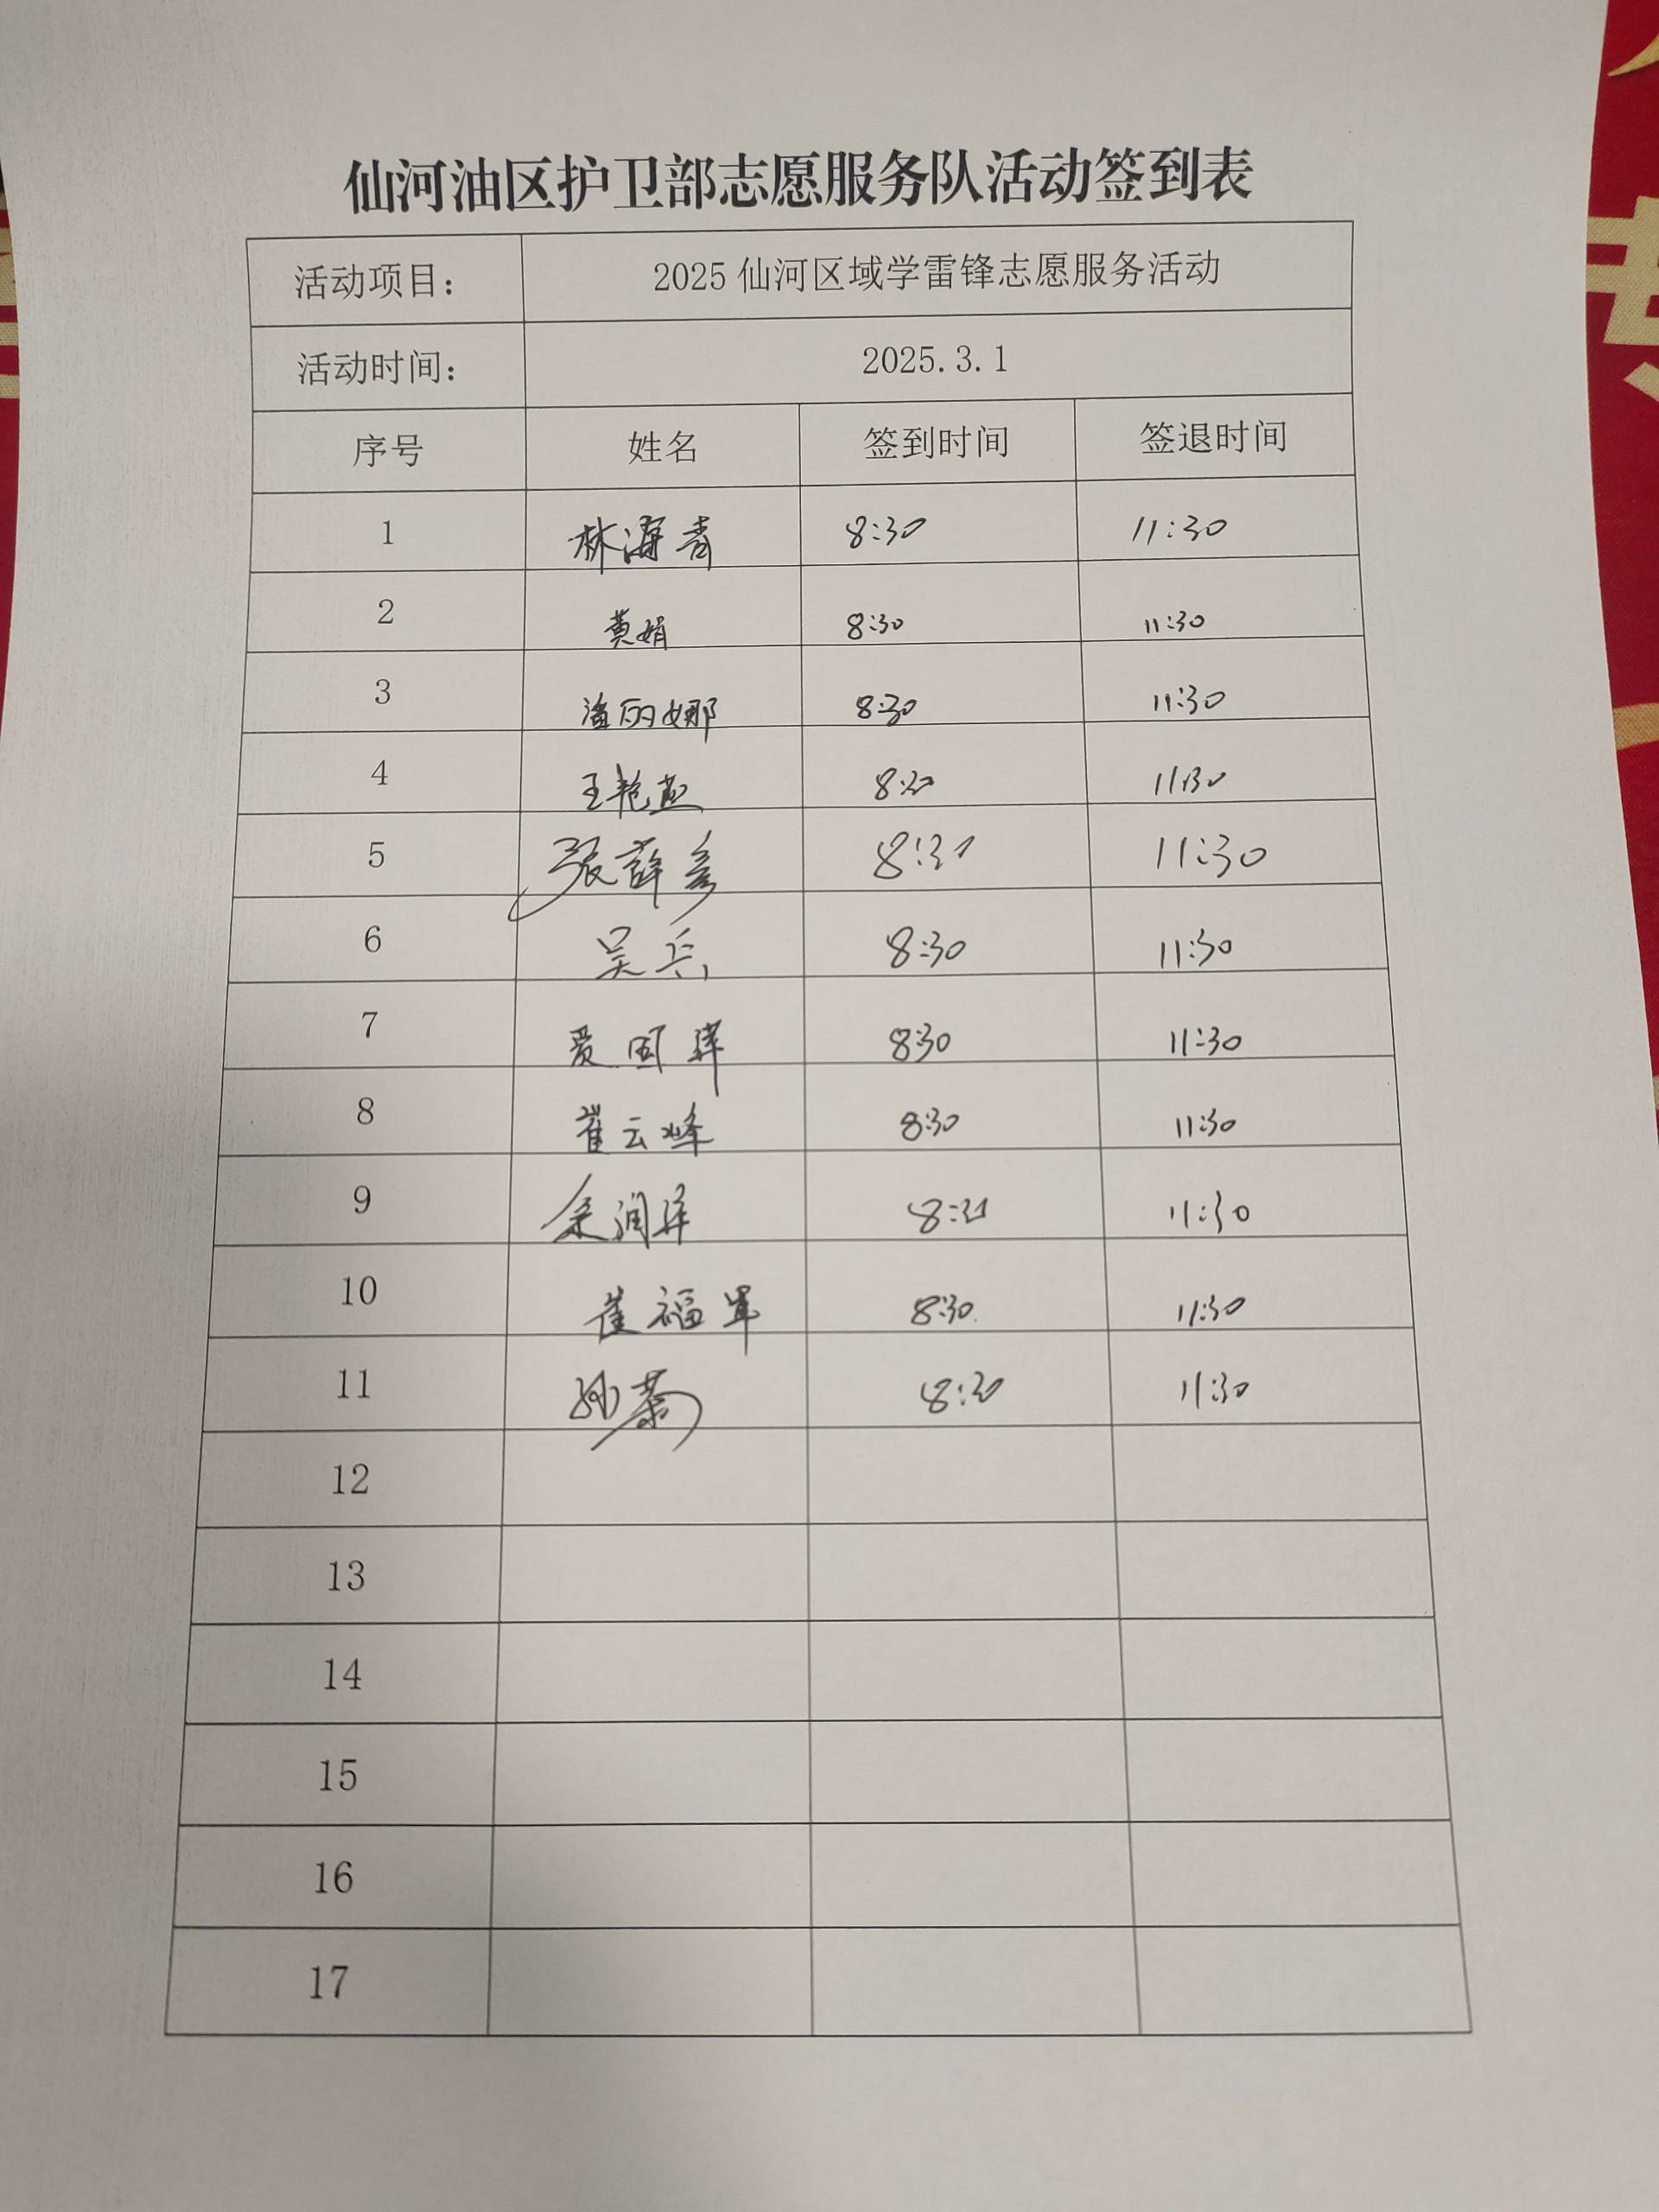 仙河油区护卫部志愿服务队活动签到表
活动项目： 2025 仙河区域学雷锋志愿服务活动
活动时间： 2025.3.1
序号 姓名 签到时间 签退时间
1 林海青 8:30 11:30
2 黄娟 8:30 11:30
3 潘丽娜 8:30 11:30
4 王艳燕 8:30 11:30
5 张薛彦 8:31 11:30
6 吴兵 8:30 11:30
7 国 8:30 11:30
8 崔云峰 8:30 11:30
9 余润泽 8:31 11:30
10 崔福军 8:30 11:30
11 孙 8:30 11:30
12
13
14
15
16
17